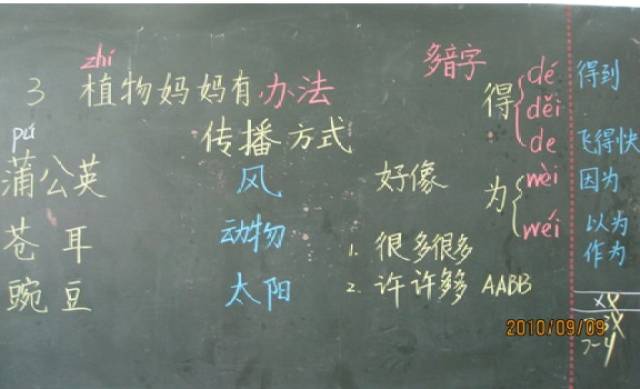 zhí
3 植物妈妈有办法
传播方式
pú
蒲公英 风
苍耳 动物
豌豆 太阳
好像
1. 很多很多
2. 许许多多 AABB
多音字
得
dé 得到
děi
de 飞得快
为
wèi 因为
wéi 以为
作为
2010/09/09